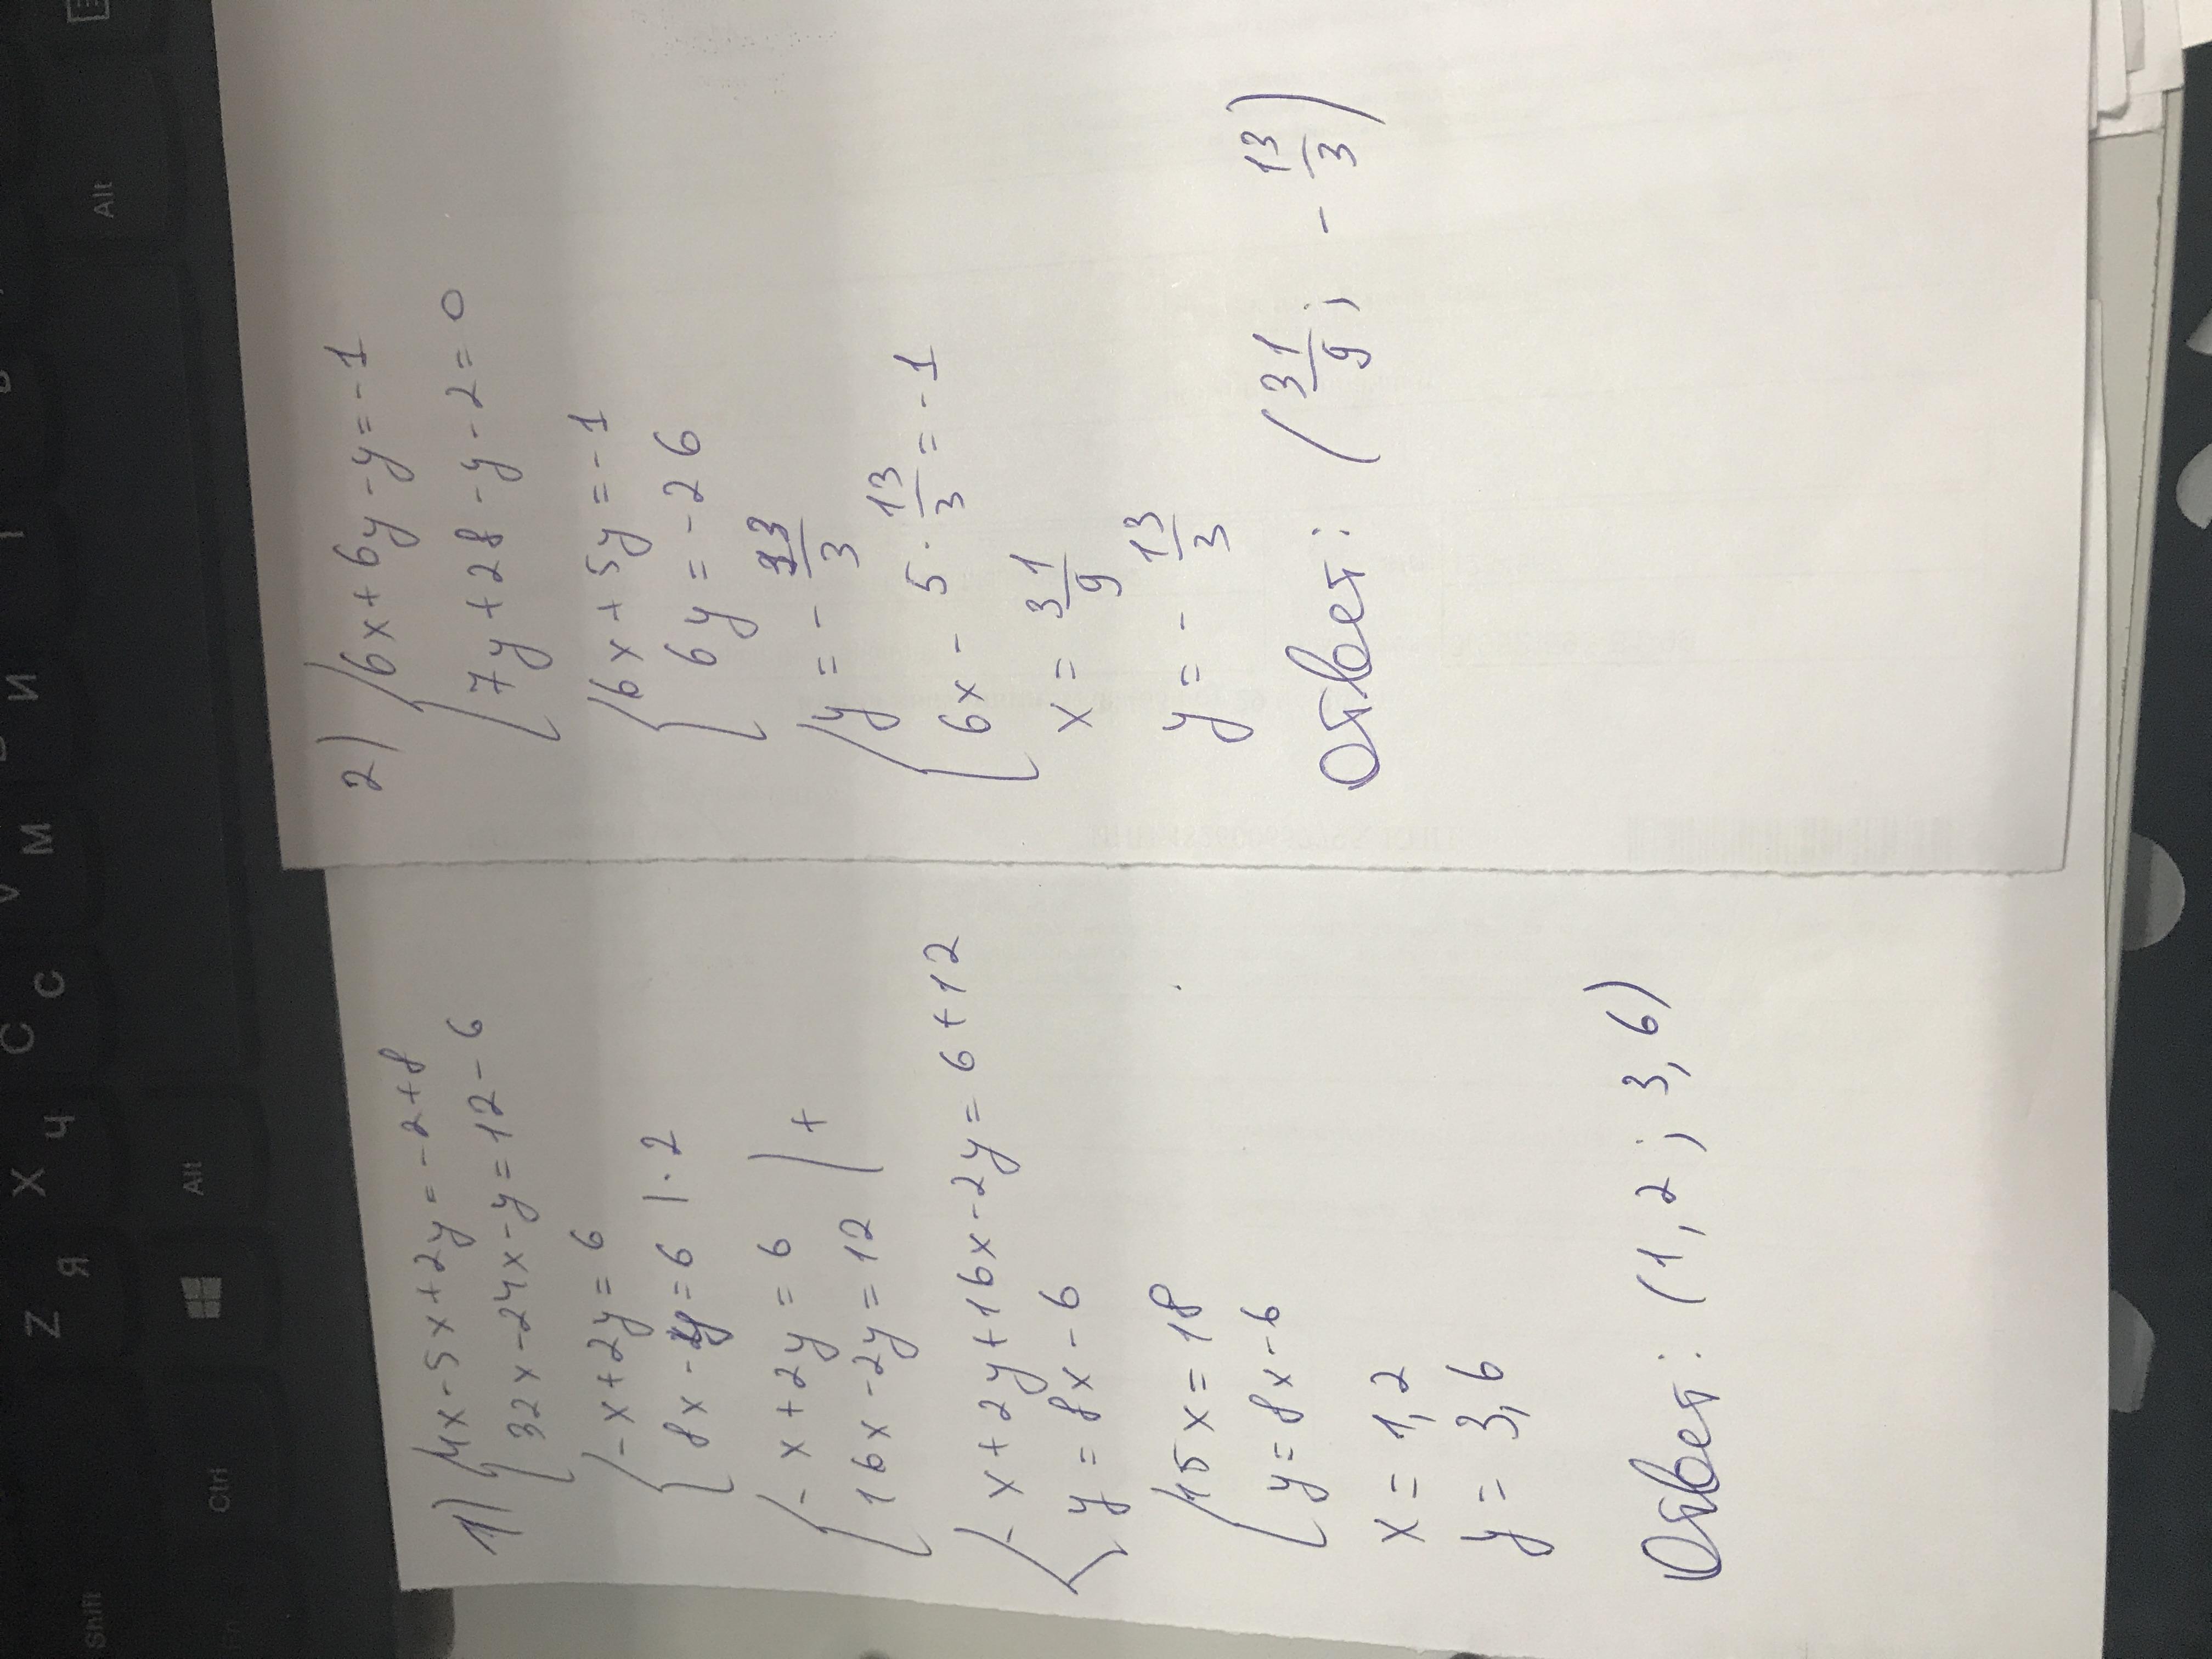 1) { 4x-5x+2y=-2+8
32x-24x-y=12-6
{ -x+2y=6
8x-y=6 |·2
{ -x+2y=6
16x-2y=12 | +
{ -x+2y+16x-2y=6+12
y=8x-6
{ 15x=18
y=8x-6
x=1,2
y=3,6
Ответ: (1,2; 3,6)
2) { 6x+6y-y=-1
7y+28-y-2=0
{ 6x+5y=-1
6y=-26
{ y=-13/3
6x-5·13/3=-1
x=31/9
y=-13/3
Ответ: (31/9; -13/3)
Shift
Z Я
X Ч
C С
V М
И
Fn
Ctrl
Alt
Alt